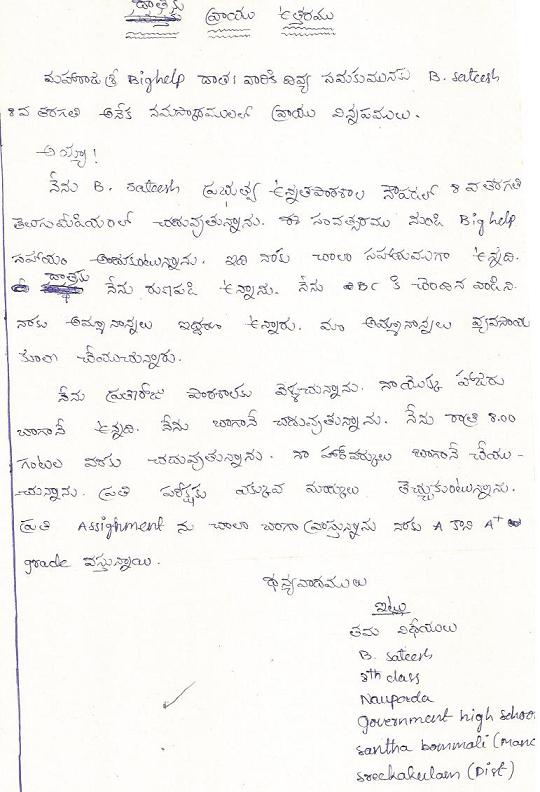 దాతకు వ్రాయు ఉత్తరము
మహారాజశ్రీ Bighelp దాతల వారికి దివ్య సముఖమునకు B. sateesh
8వ తరగతి అనేక నమస్కారములతో వ్రాయు విన్నపములు.
అయ్యా!
నేను B. sateesh ప్రభుత్వ ఉన్నతపాఠశాల నౌపడలో 8 వ తరగతి
తెలుగుమీడియంలో చదువుతున్నాను. ఈ సంవత్సరము నుండి Bighelp
సహాయం అందుకుంటున్నాను. ఇది నాకు చాలా సహాయముగా ఉన్నది.
దాతకు నేను రుణపడి ఉన్నాను. నేను BC కి చెందిన వాడిని.
నాకు అమ్మానాన్నలు ఇద్దరూ ఉన్నారు. మా అమ్మానాన్నలు వ్యవసాయ
కూలీ చేయుచున్నారు.
నేను ప్రతిరోజు పాఠశాలకు వెళ్ళుచున్నాను. నాయొక్క హాజరు
బాగానే ఉన్నది. నేను బాగానే చదువుతున్నాను. నేను రాత్రి 8.00
గంటల వరకు చదువుతున్నాను. నా హోంవర్కులు బాగానే చేయు-
-చున్నాను. ప్రతి పరీక్షకు ఎక్కువ మార్కులు తెచ్చుకుంటున్నాను.
ప్రతి Assighment ను చాలా బాగా వ్రాస్తున్నాను నాకు A కాని A+
grade వస్తున్నాయి.
ధన్యవాదములు
ఇట్లు
తమ విధేయులు
B. sateesh
8th class
Nauporda
Government high school
santha bommali (Mand
sreekakulam (Dist)